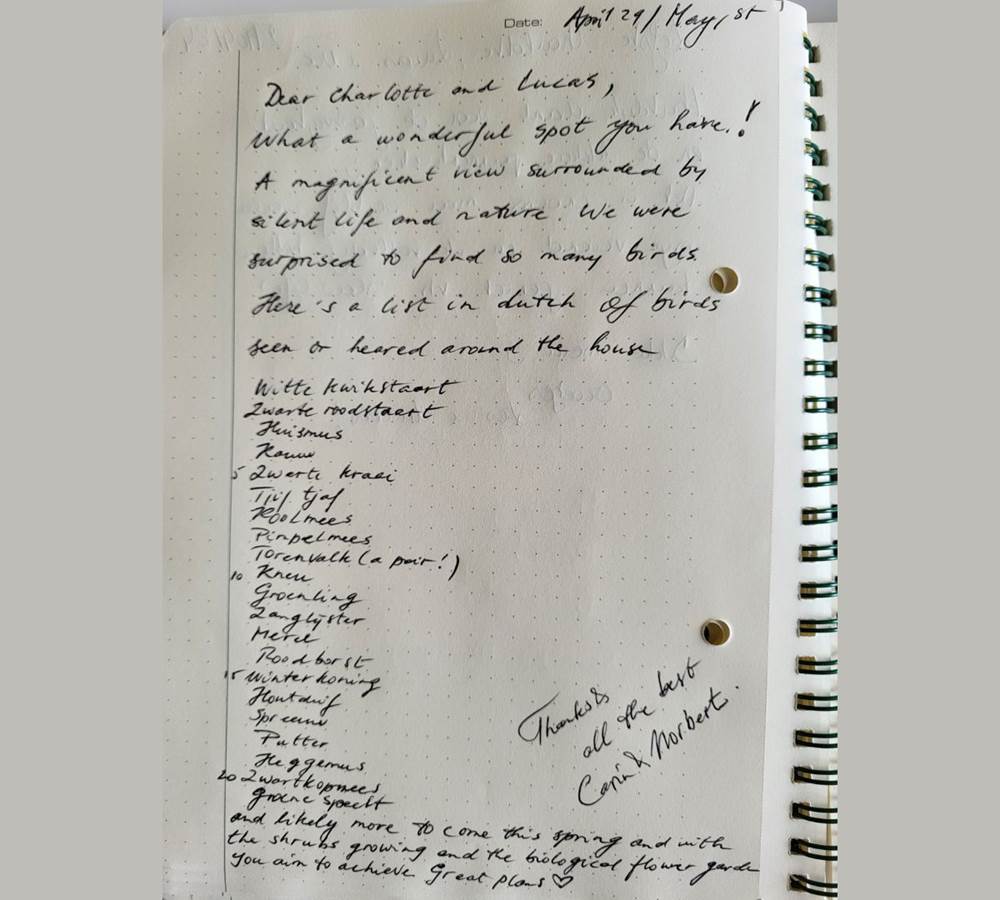 Date: April 29 / May 1st
Dear Charlotte and Lucas,
What a wonderful spot you have.!
A magnificent view surrounded by
silent life and nature. We were
surprised to find so many birds.
Here's a list in dutch of birds
seen or heared around the house
Witte kwikstaart
Zwarte roodstaart
Huismus
Kauw
5 Zwarte kraai
Tjif tjaf
Koolmees
Pimpelmees
Torenvalk (a pair!)
10 Kneu
Groenling
Zanglijster
Merel
Roodborst
15 Winterkoning
Houtduif
Spreeuw
Putter
Heggemus
20 Zwartkopmees
groene specht
and likely more to come this spring and with
the shrubs growing and the biological flower garden
you aim to achieve Great plans ♡
Thanks &
all the best
Carin & Norbert.